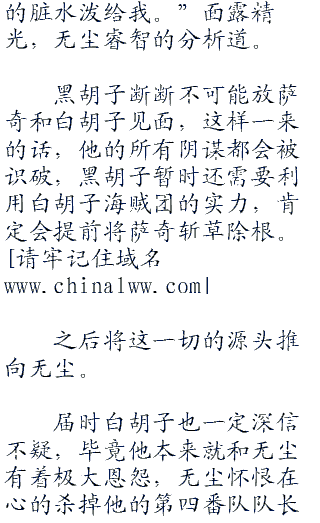 的脏水泼给我。”面露精
光，无尘睿智的分析道。
黑胡子断断不可能放萨
奇和白胡子见面，这样一来
的话，他的所有阴谋都会被
识破，黑胡子暂时还需要利
用白胡子海贼团的实力，肯
定会提前将萨奇斩草除根。
[请牢记住域名
www.china1ww.com|
之后将这一切的源头推
向无尘。
届时白胡子也一定深信
不疑，毕竟他本来就和无尘
有着极大恩怨，无尘怀恨在
心的杀掉他的第四番队队长